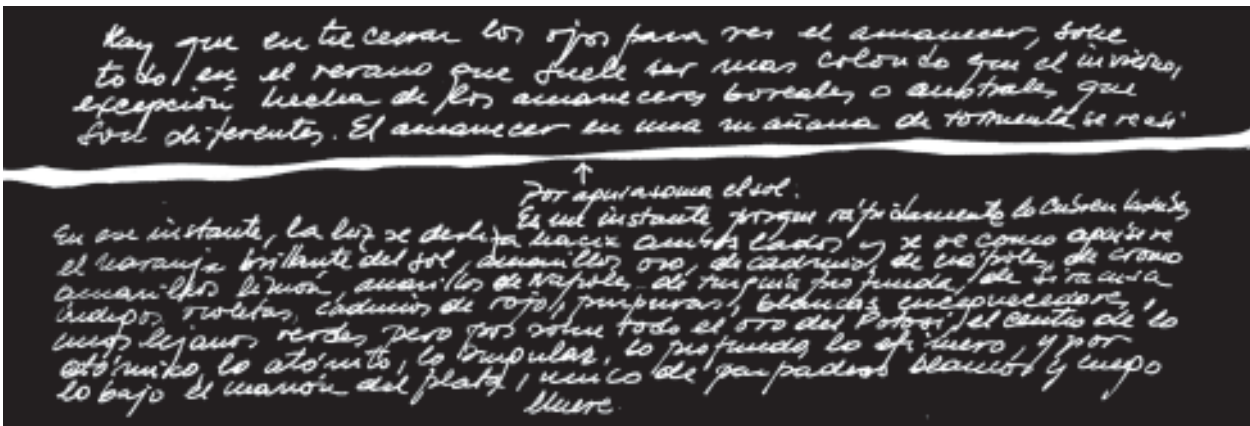 Hay que entrecerrar los ojos para ver el amanecer, sobre
todo en el verano que suele ser mas colorido que el invierno,
excepción hecha de los amaneceres boreales o australes que
son diferentes. El amanecer en una mañana de tormenta se ve así
↑
Por aqui asoma el sol.
Es un instante porque rápidamente lo cubren las nubes
En ese instante, la luz se desliza hacia ambos lados y se ve como aparece
el naranja brillante del sol, amarillos, oro, de cadmio, de nápoles, de cromo
amarillos limón, amarillos de Nápoles, de profunda, de siracusa
indigos violetas, cadmios de rojo, purpuras, blancas enceguecedores,
unos lejanos verdes pero por sobre todo el oro del Potosí, el centro de lo
atómico, lo atónito, lo singular, lo profundo, lo efimero y por
lo bajo el marrón del plata, unico de parpadeos blancos y luego
Muere.